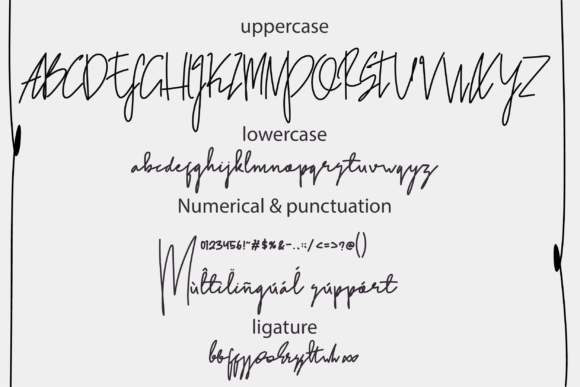 uppercase
ABCDEFGHIJKLMNOPQRSTUVWXYZ
lowercase
abcdefghijklmnopqrstuvwqyz
Numerical & punctuation
0123456!"#$%&-..:;/<=>?@()
Mùl̂tilïñgúáĺ śúppórt
ligature